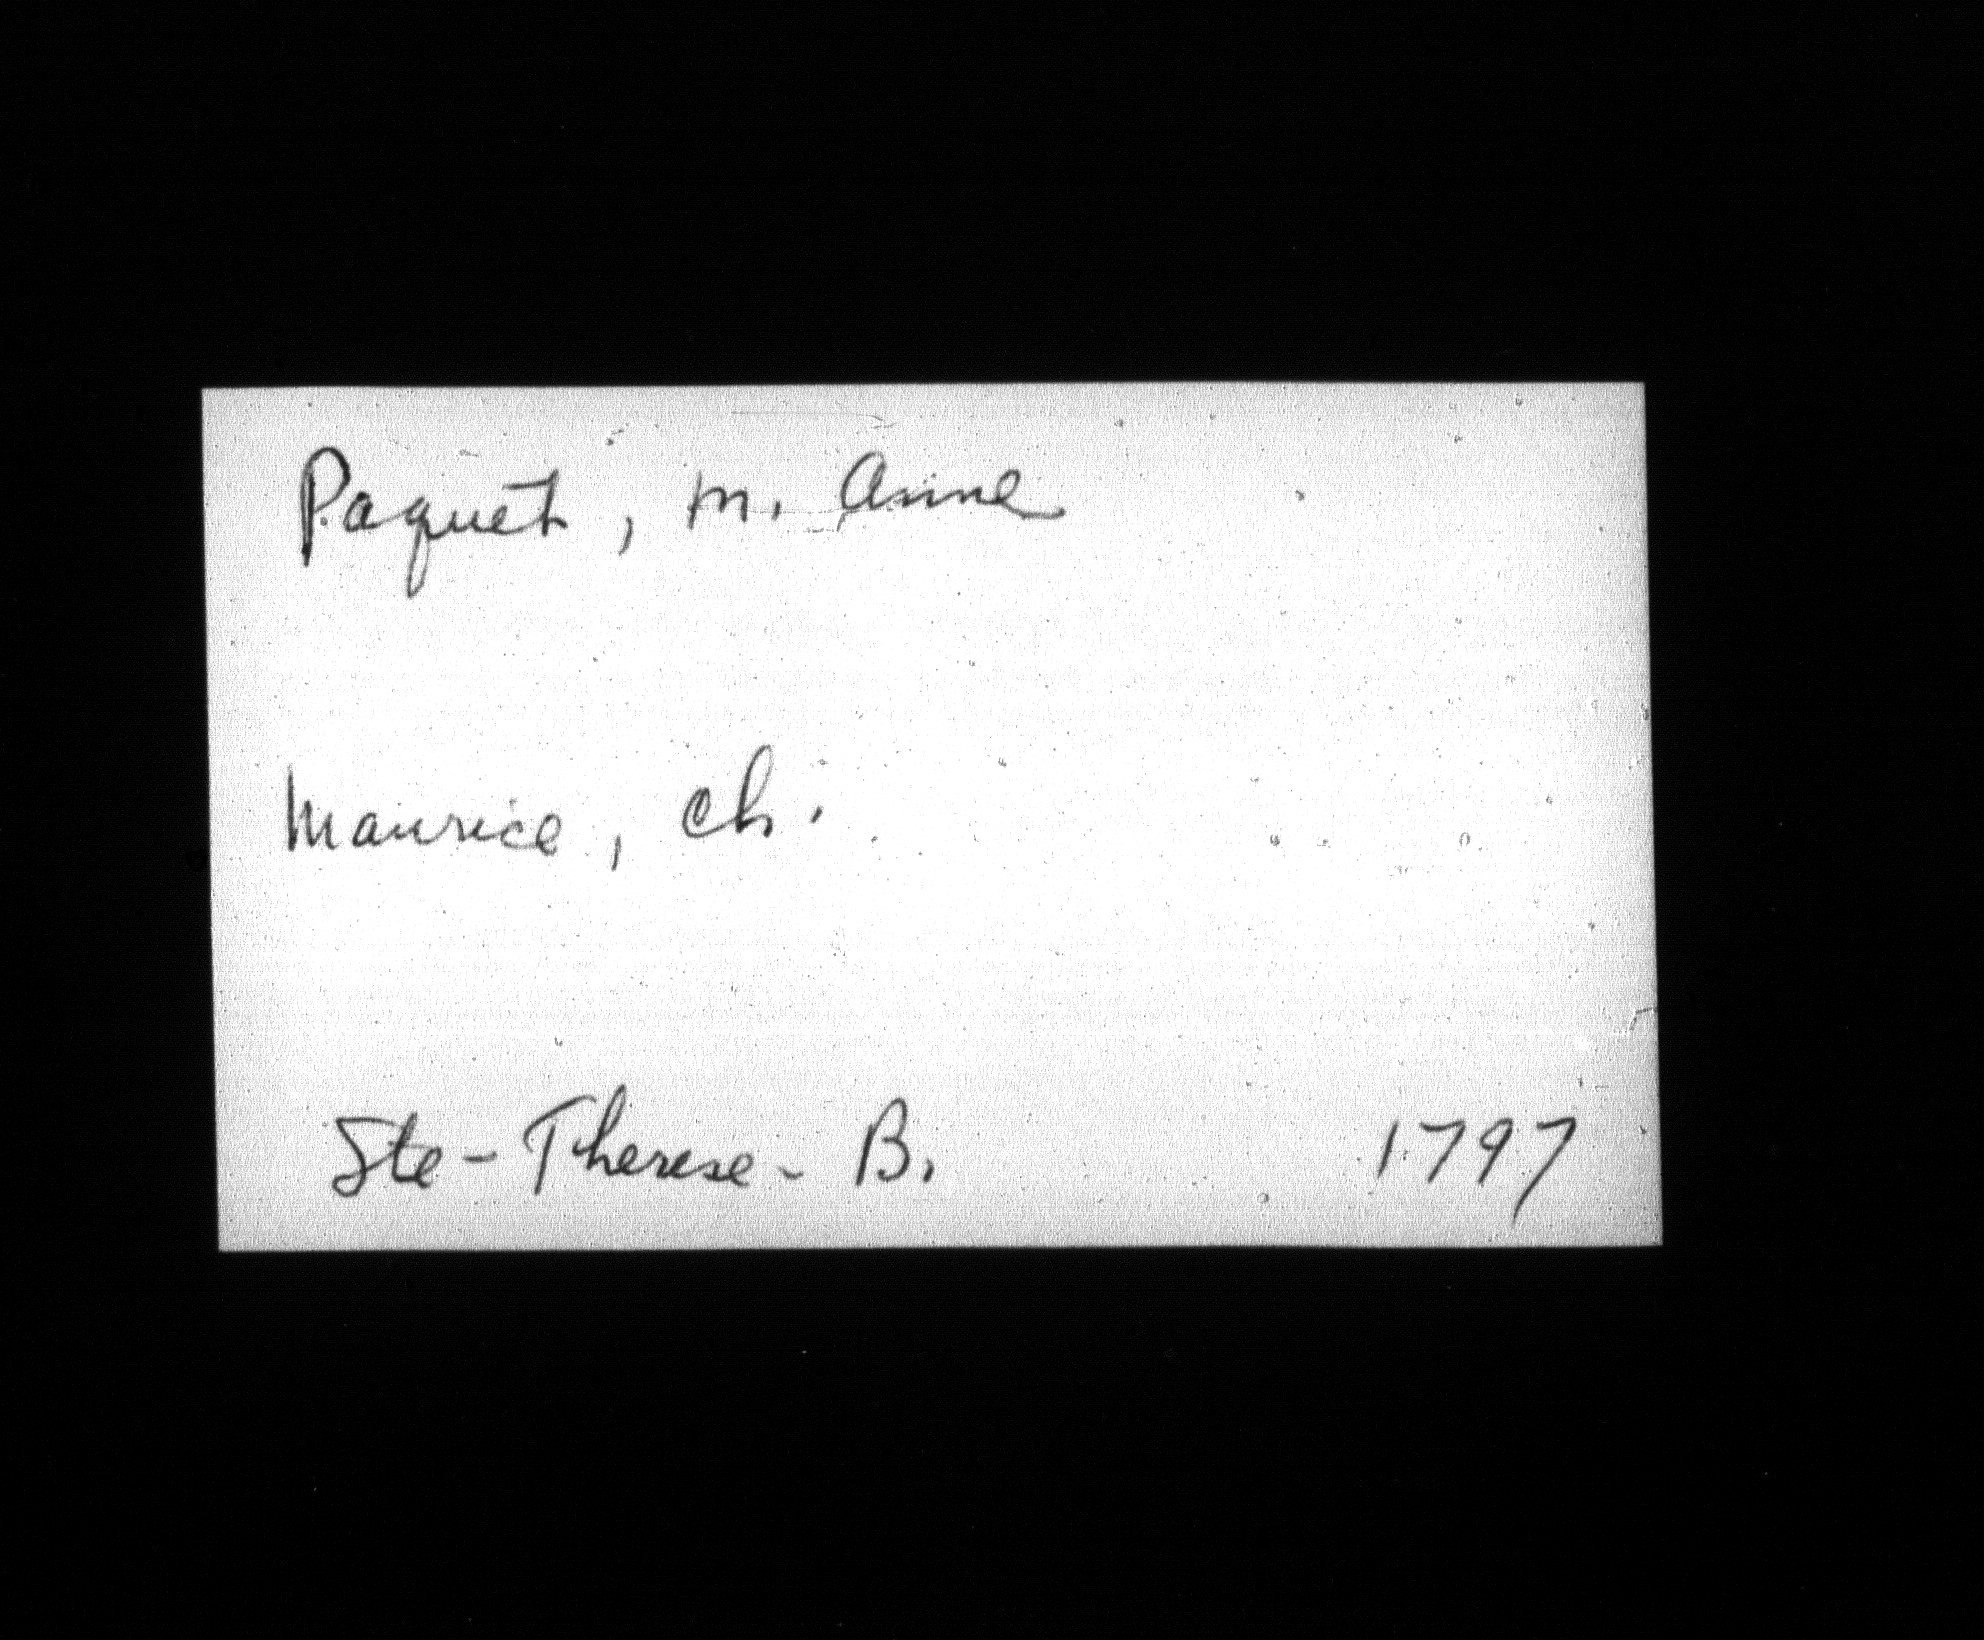 Paquet, M. Anne
Maurice, Ch.
Ste-Therese-B. 1797